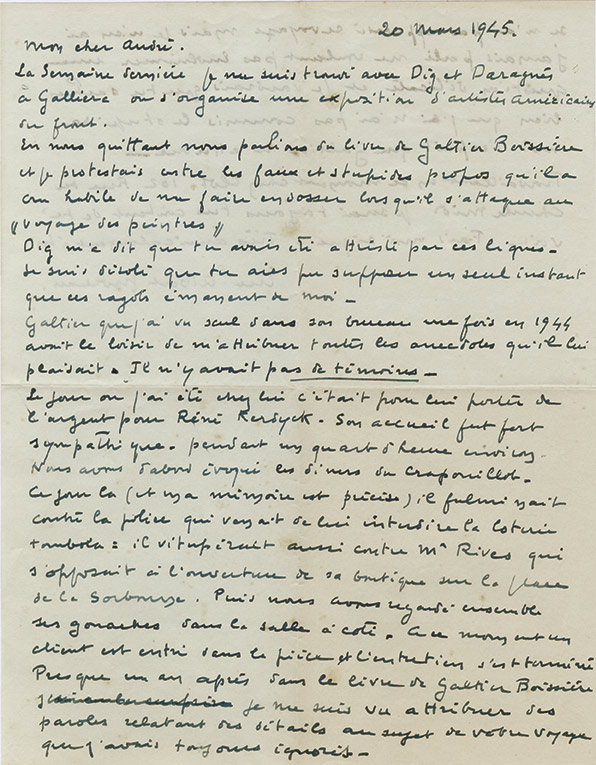 20 Mars 1945.
Mon cher André.
La Semaine dernière je me suis trouvé avec Dig et Daragnès
à Galliera où s'organise une exposition d'artistes américains
du front.
En nous quittant nous parlions du livre de Galtier Boissière
et je protestais contre les faux et stupides propos qu'il a
cru habile de me faire endosser lorsqu'il s'attaque au
"Voyage des peintres"
Dig m'a dit que tu avais été attristé par ces lignes -
Je suis désolé que tu aies pu supposer un seul instant
que ces ragots émanent de moi -
Galtier que j'ai vu seul dans son bureau une fois en 1944
avait le loisir de m'attribuer toutes les anecdotes qu'il lui
plaisait. Il n'y avait pas de témoins -
Le jour où j'ai été chez lui c'était pour lui porter de
l'argent pour Réné Kerdyck. Son accueil fut fort
sympathique - pendant un quart d'heure environ -
Nous avons d'abord évoqué les diners du Crapouillot -
Ce jour là (et ma mémoire est précise) il fulminait
contre la police qui venait de lui interdire la loterie
tombola = il vitupérait aussi contre Mr Rives qui
s'opposait à l'ouverture de sa boutique sur la place
de la Sorbonne. Puis nous avons regardé ensemble
ses gouaches dans la salle à coté. A ce moment un
client est entré dans la pièce et l'entretien s'est terminé
Presque un an après dans le livre de Galtier Boissière
je me suis vu attribuer des
paroles relatant des détails au sujet de votre voyage
que j'avais toujours ignorés -